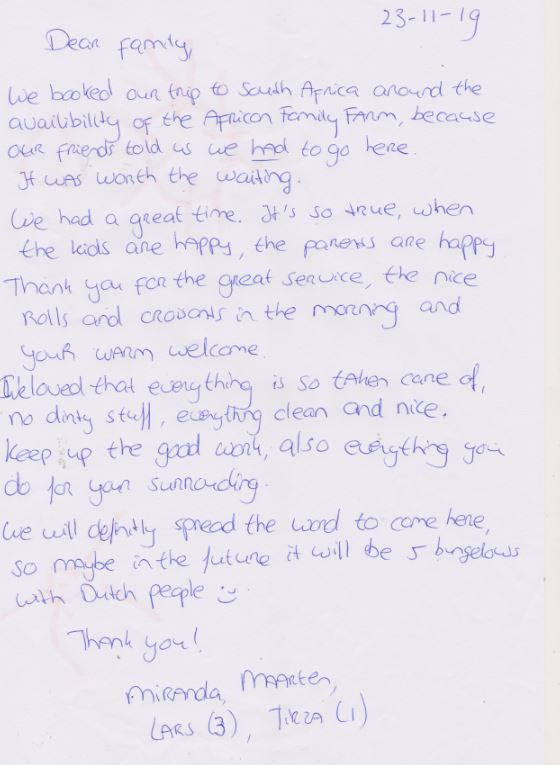 23-11-19
Dear family,
We booked our trip to South Africa around the
availibility of the African Family Farm, because
our friends told us we had to go here.
It was worth the waiting.
We had a great time. It's so true, when
the kids are happy, the parents are happy
Thank you for the great service, the nice
Rolls and croisants in the morning and
your warm welcome.
We loved that everything is so taken care of,
no dirty stuff, everything clean and nice.
Keep up the good work, also everything you
do for your surrounding.
We will definitly spread the word to come here,
so maybe in the future it will be 5 bungelows
with Dutch people :)
Thank you!
Miranda, Maarten,
Lars (3), Tirza (1)